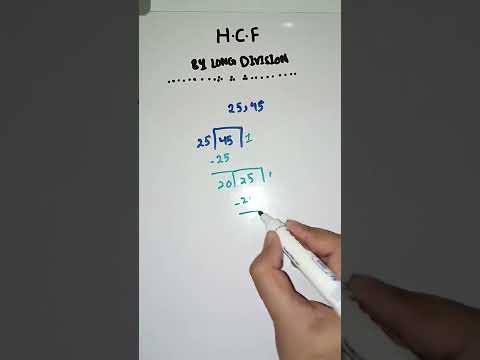 H.C.F
BY LONG DIVISION
25,45
25 45 1
-25
20 25
-2